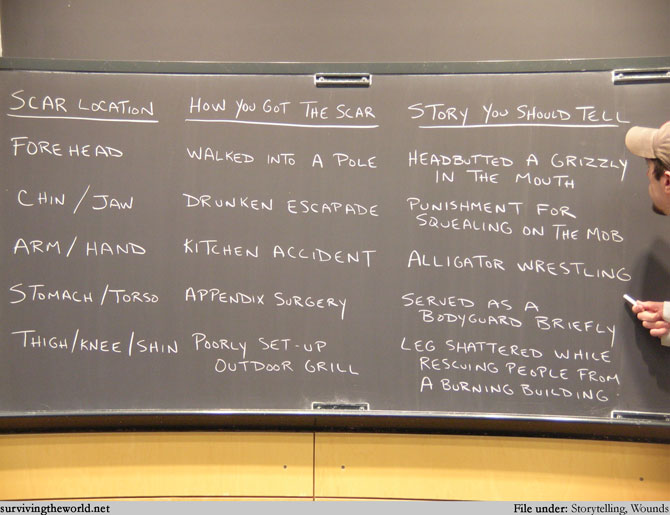 SCAR LOCATION
HOW YOU GOT THE SCAR
STORY YOU SHOULD TELL
FOREHEAD
WALKED INTO A POLE
HEADBUTTED A GRIZZLY
IN THE MOUTH
CHIN / JAW
DRUNKEN ESCAPADE
PUNISHMENT FOR
SQUEALING ON THE MOB
ARM / HAND
KITCHEN ACCIDENT
ALLIGATOR WRESTLING
STOMACH / TORSO
APPENDIX SURGERY
SERVED AS A
BODYGUARD BRIEFLY
THIGH/KNEE/SHIN
POORLY SET-UP
OUTDOOR GRILL
LEG SHATTERED WHILE
RESCUING PEOPLE FROM
A BURNING BUILDING
survivingtheworld.net
File under: Storytelling, Wounds